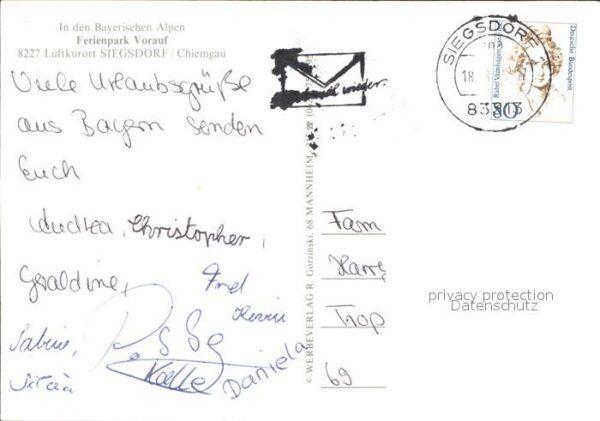 In den Bayerischen Alpen
Ferienpark Vorauf
8227 Luftkurort SIEGSDORF / Chiemgau
Viele Urlaubsgrüße
aus Bayern senden
Euch
Andrea, Christopher,
Geraldine,
Fred
Kevin
Sabine,
Kalle
Daniela
wieder.
SIEGSDORF
18.
83313
Deutsche Bundespost
Rahel Varnhagen
80
© WERBEVERLAG R. Gorzinski, 68 MANNHEIM,
Fam
Harr
Trop
69
privacy protection
Datenschutz